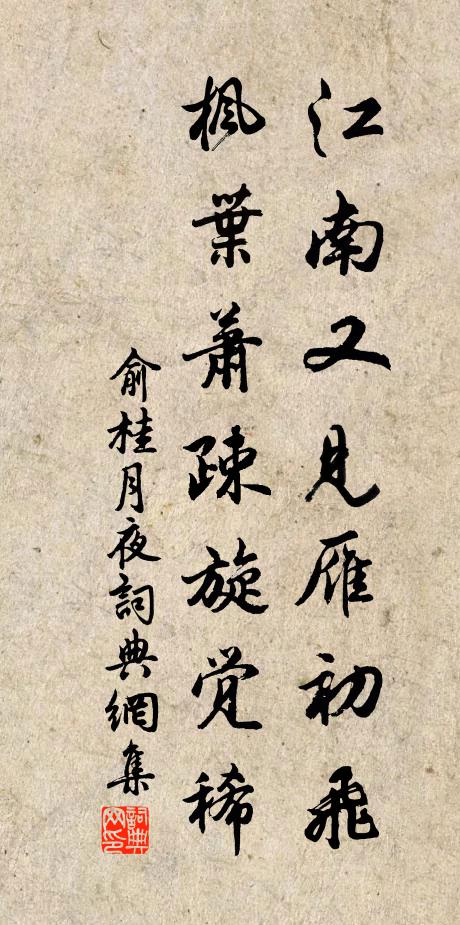 江南又見雁初飛
楓葉蕭疎旋覺稀
俞桂月夜詞典網集
詞典網印